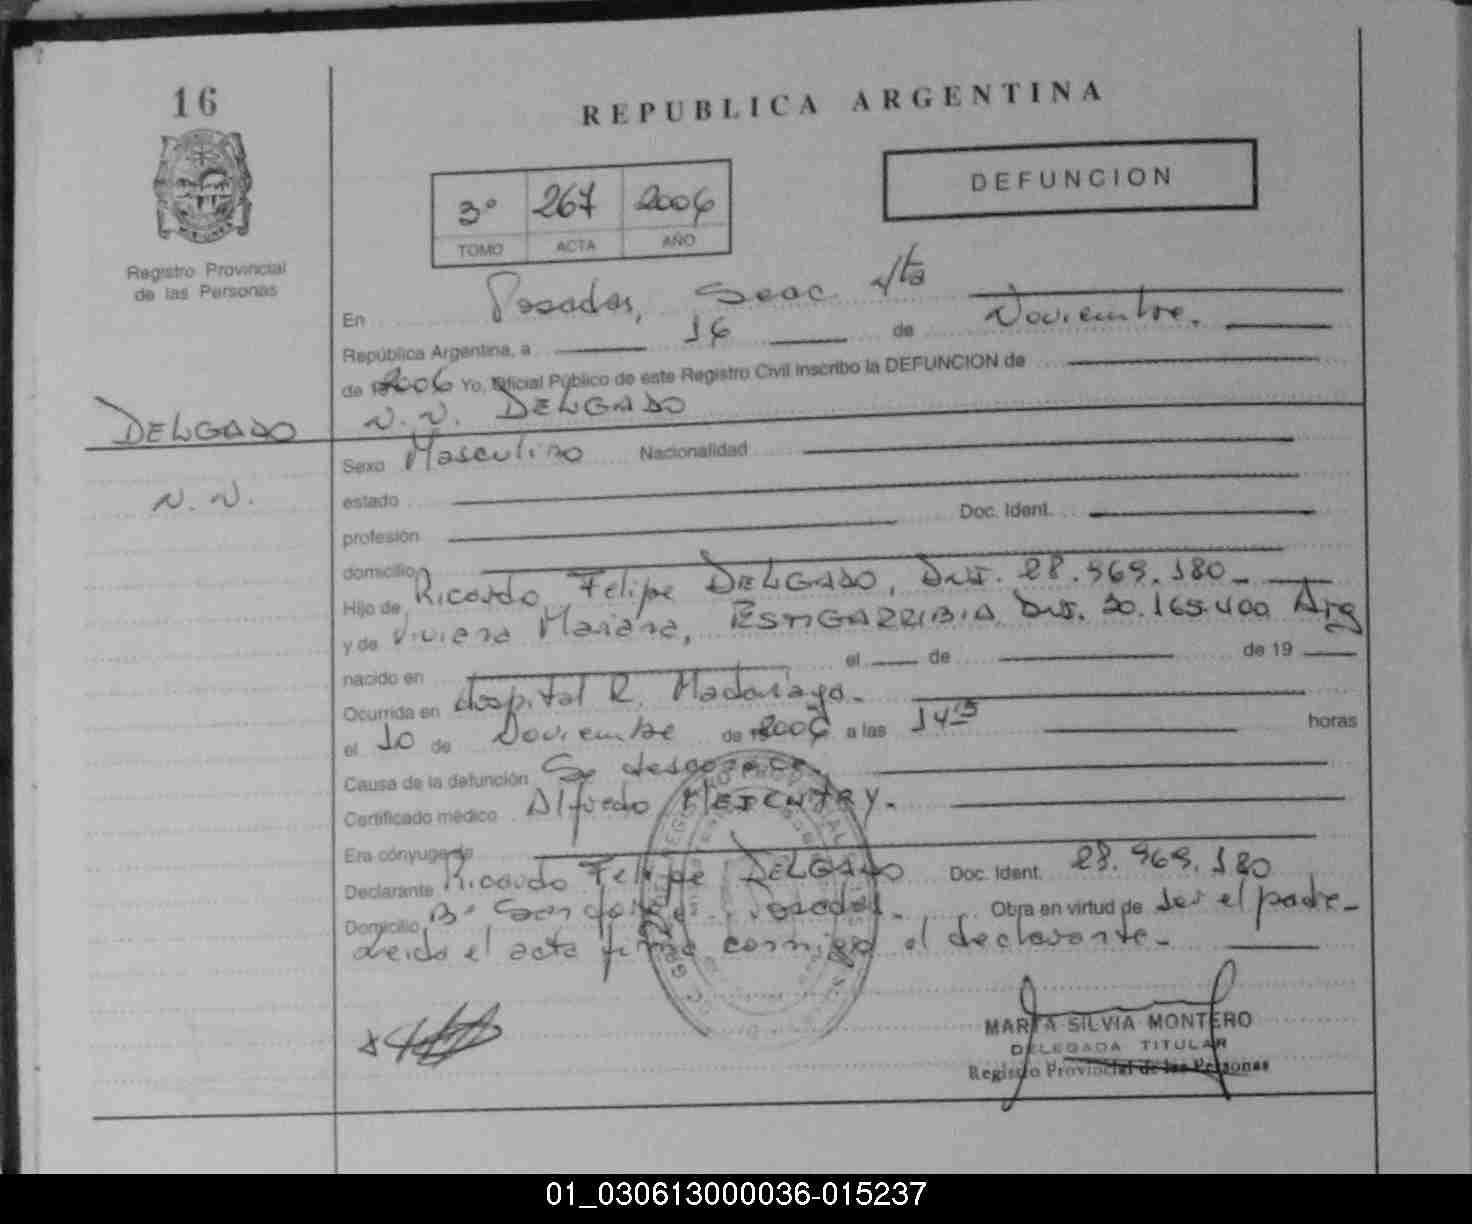 16
REPUBLICA ARGENTINA
DEFUNCION
3º 267 2006
TOMO ACTA AÑO
Registro Provincial
de las Personas
En Posadas, Secc. 4ta
República Argentina, a 16 de Noviembre.
de 2006 Yo, Oficial Público de este Registro Civil inscribo la DEFUNCION de
DELGADO
N.N. DELGADO
Sexo Masculino Nacionalidad
N.N.
estado
profesión Doc. Ident.
domicilio
Hijo de Ricardo Felipe DELGADO, DNI. 28.969.180
y de Viviana Mariana, ESTIGARRIBIA DNI. 30.165.400 Arg
nacido en el de de 19
Ocurrida en Hospital R. Madariaga.
el 10 de Noviembre de 2006 a las 14 horas
Causa de la defunción Se desconoce
Certificado médico Alfredo
Era cónyuge de
Declarante Ricardo Felipe DELGADO Doc. Ident. 28.969.180
Domicilio Bº San Posadas. Obra en virtud de ser el padre
Leida el acta firma conmigo el declarante
MARTA SILVIA MONTERO
DELEGADA TITULAR
Registro Provincial de las Personas
01_030613000036-015237